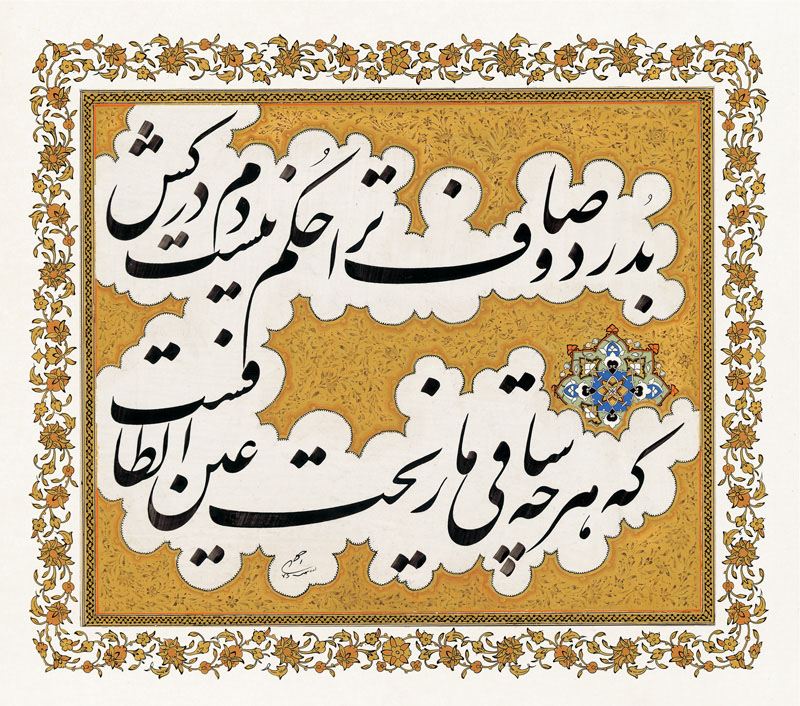 بدُرد و صاف ترا حُکم نیست دم درکش
که هر چه ساقی ما ریخت عین الطافست